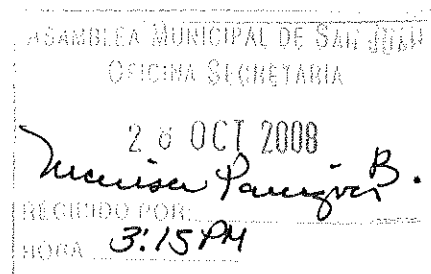 ASAMBLEA MUNICIPAL DE SAN JUAN
OFICINA SECRETARIA
OCT 2008
B.
RECIBIDO POR:
HORA 3:15 PM